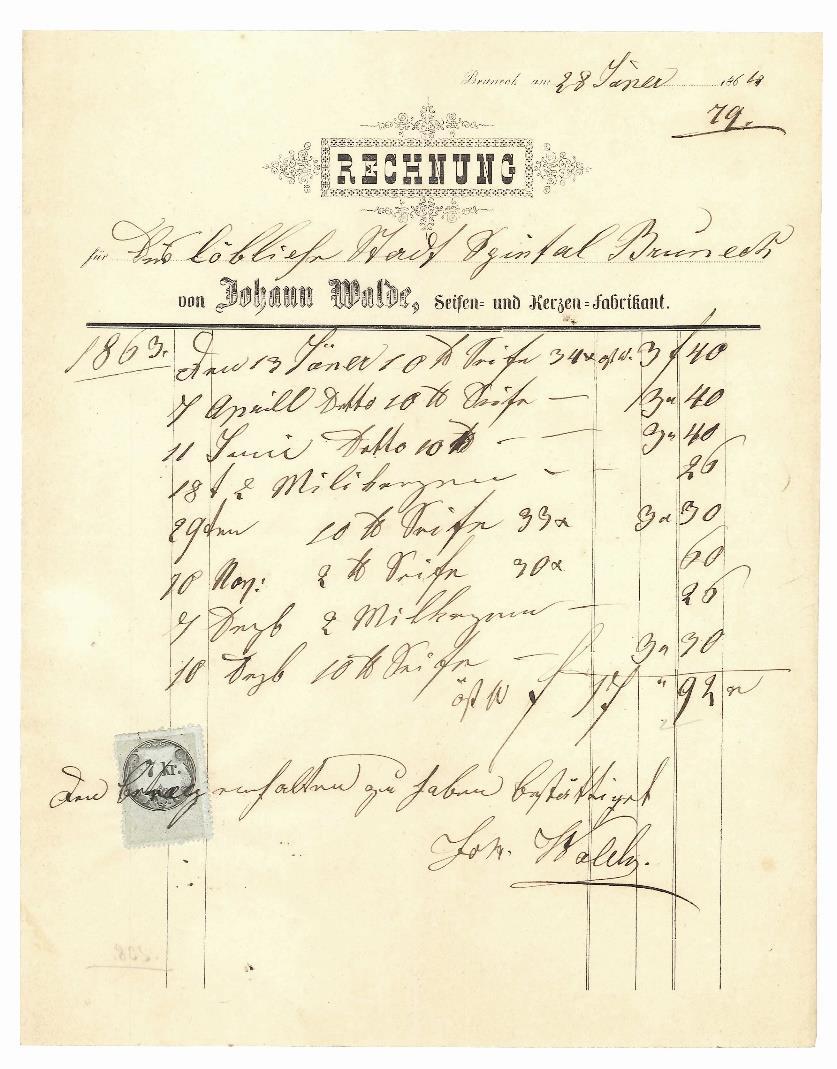 Bruneck am 28 Jäner 1864
79.
RECHNUNG
für Das löbliche Stadt Spintal Bruneck
von Johann Walde, Seifen= und Kerzen=Fabrikant.
1863. Den 13 Jäner 10 ℔ Seife 34x öst W. 3 f 40
7 Aprill Detto 10 ℔ Seife — 3 " 40
11 Juni Detto 10 ℔ — — 3 " 40
18t 2 Milikerzen — — 26
29ten 10 ℔ Seife 33x 3 " 30
10 Nov: 2 ℔ Seife 30x 60
7 Dezb 2 Milkerzen — 26
10 Dezb 10 ℔ Seife — 3 " 30
öst W f 17 " 92 x
7 kr.
Den betrag erhalten zu haben bestättiget
Joh. Walde.